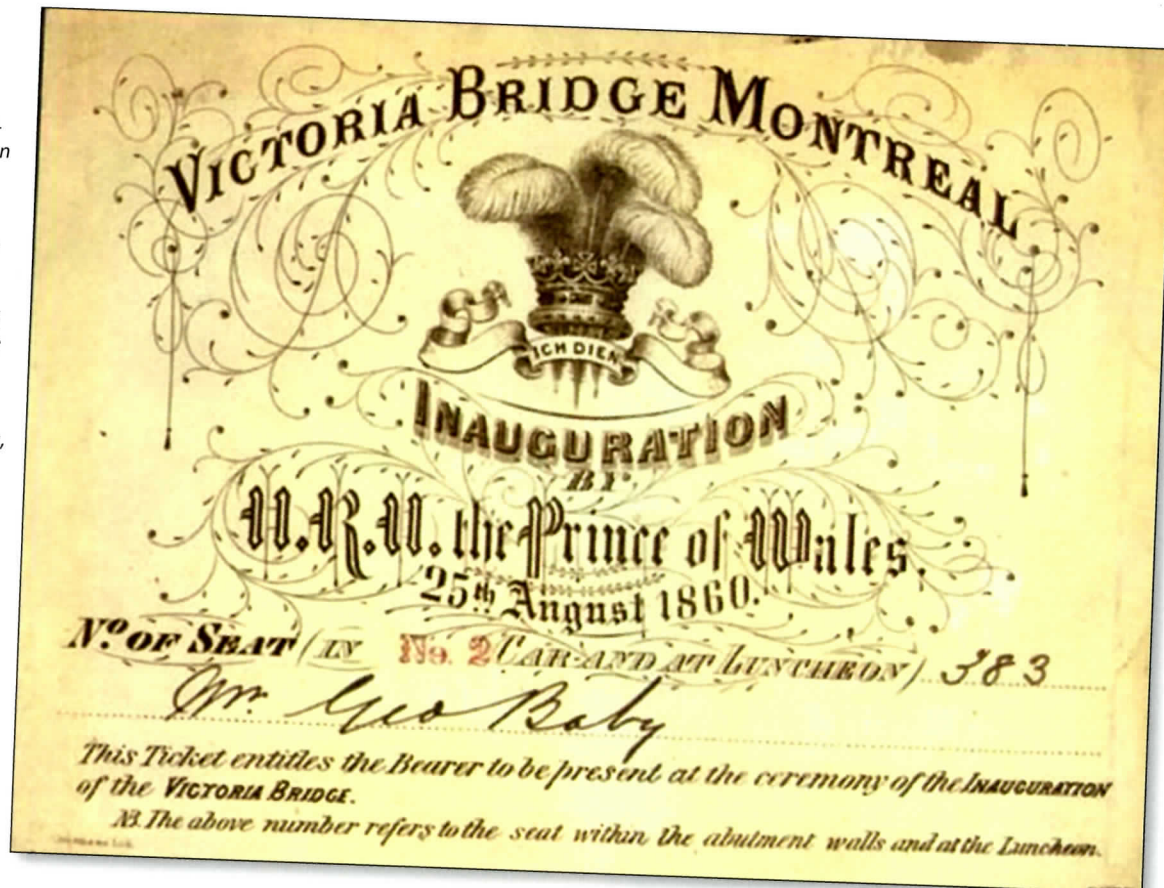 n
,
VICTORIA BRIDGE MONTREAL
ICH DIEN
INAUGURATION
BY
H.R.H. the Prince of Wales.
25th August 1860.
No. OF SEAT (IN No. 2 CAR AND AT LUNCHEON) 383
Mr. Geo Baby
This Ticket entitles the Bearer to be present at the ceremony of the INAUGURATION
of the VICTORIA BRIDGE.
NB. The above number refers to the seat within the abutment walls and at the Luncheon.